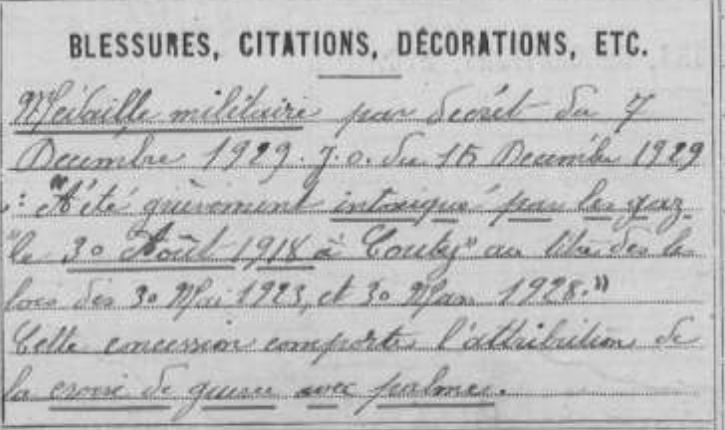 BLESSURES, CITATIONS, DÉCORATIONS, ETC.
Médaille militaire par décret du 7
Décembre 1929. J. o. du 15 Décembre 1929
: "A été grièvement intoxiqué par les gaz
"le 30 Août 1918 à Coucy" au titre des
lois des 30 Mai 1923, et 30 Mars 1928."
Cette concession comporte l'attribution de
la croix de guerre avec palmes.